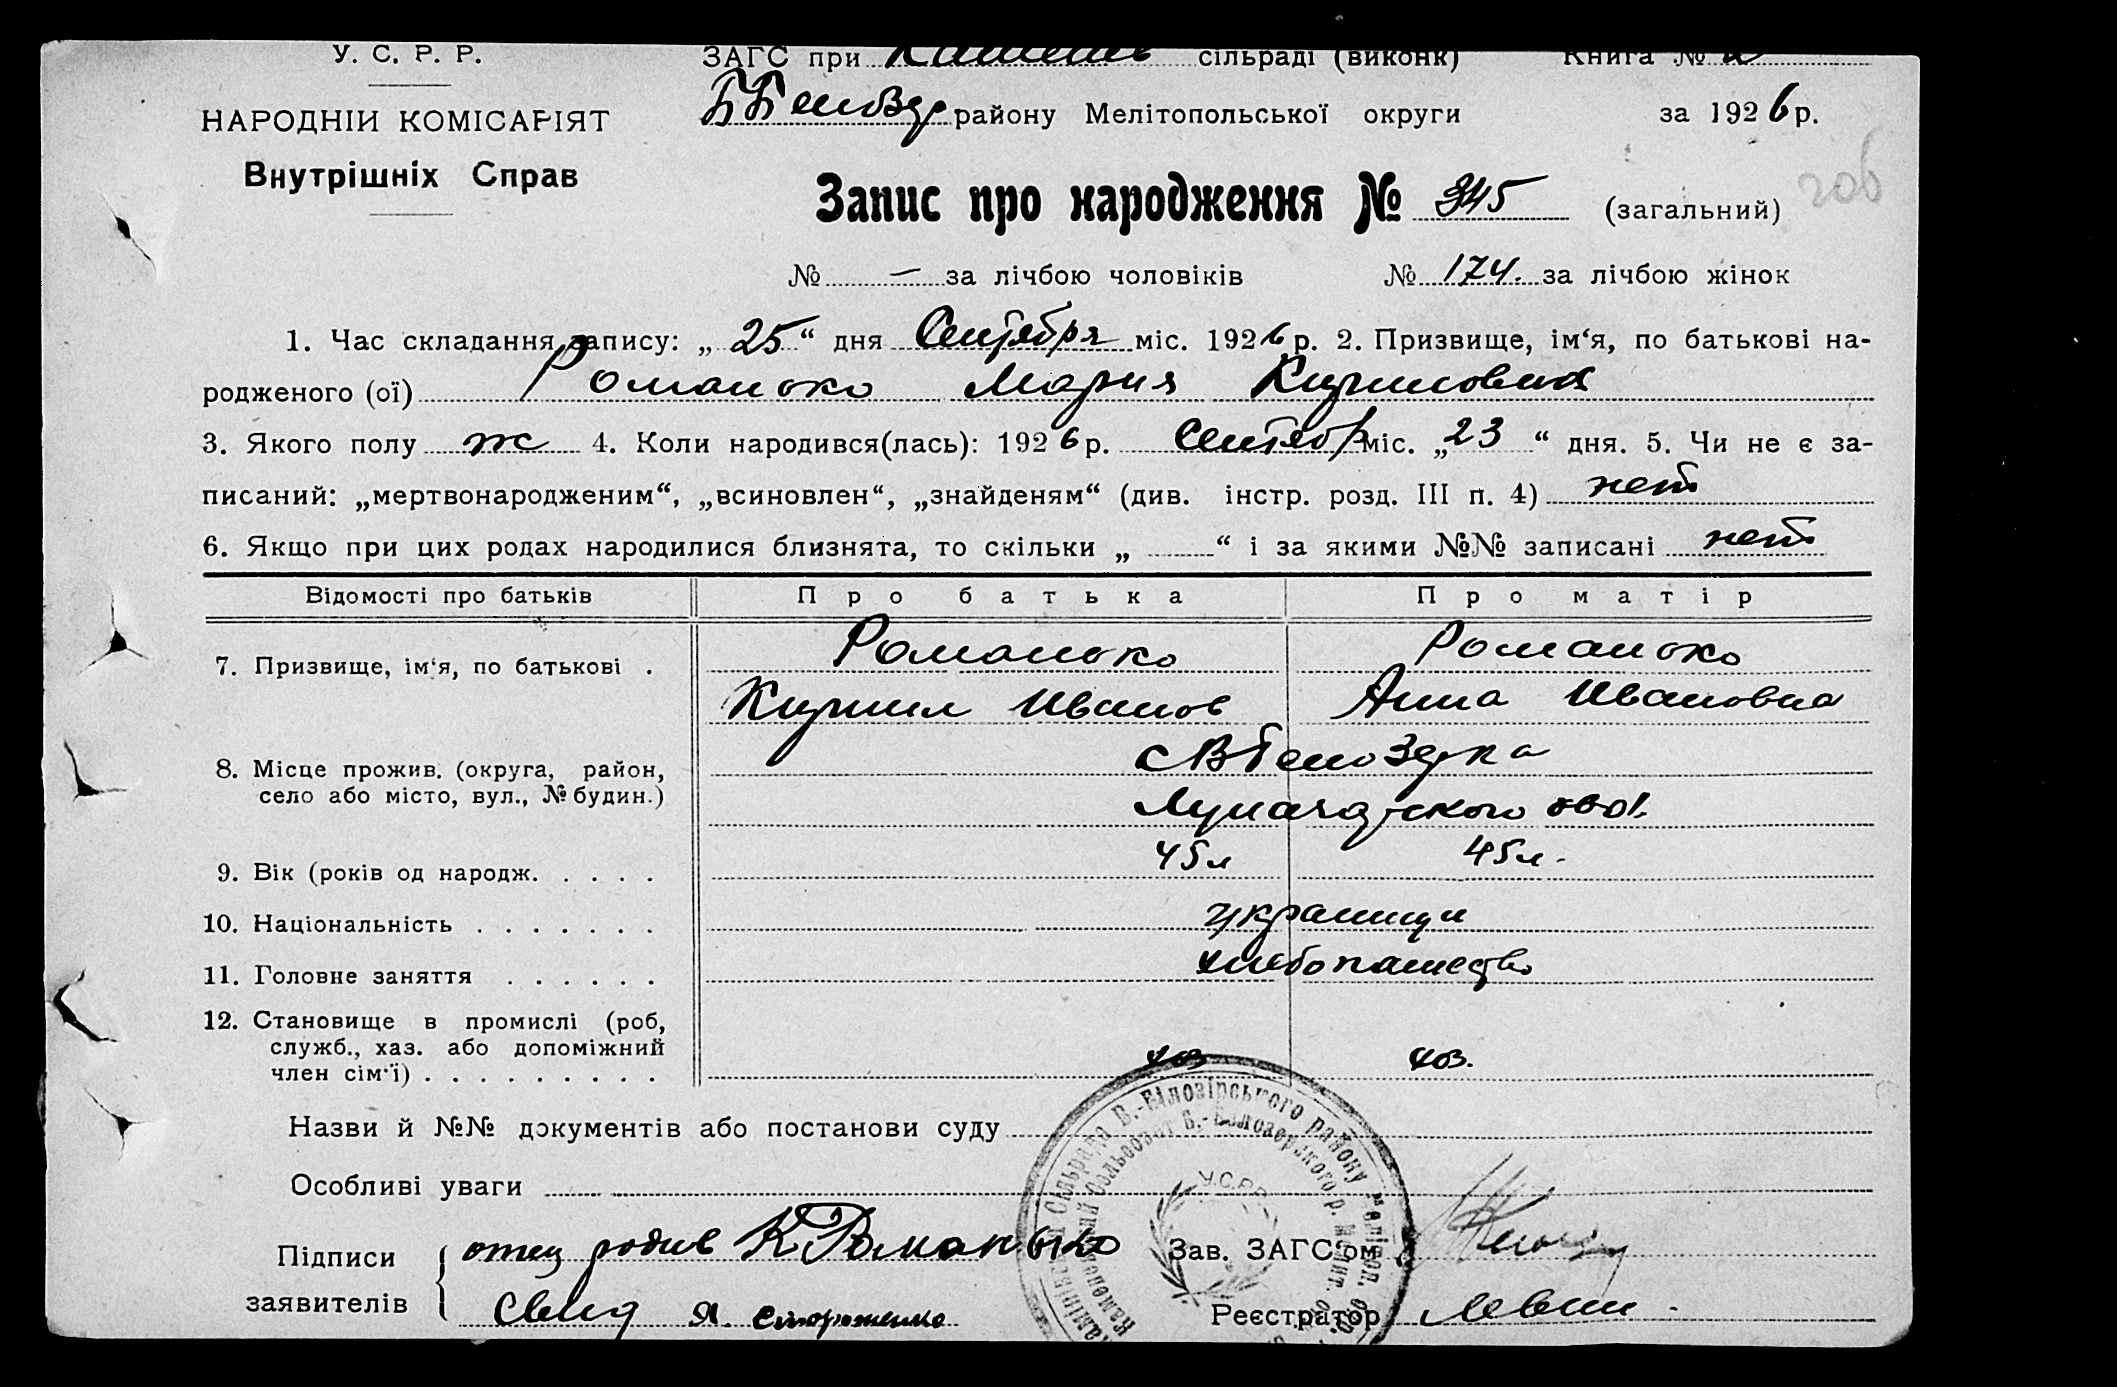 У. С. Р. Р.
ЗАГС при сільраді (виконк) Книга №
НАРОДНІЙ КОМІСАРІЯТ
району Мелітопольської округи за 1926 р.
Внутрішніх Справ
Запис про народження № 345 (загальний)
№ — за лічбою чоловіків № 174. за лічбою жінок
1. Час складання запису: „25“ дня Сентября міс. 1926 р. 2. Призвище, ім‘я, по батькові на-
родженого (ої) Романько Мария Кириловна
3. Якого полу ж 4. Коли народився(лась): 1926 р. Сентябр міс. „23“ дня. 5. Чи не є за-
писаний: „мертвонародженим“, „всиновлен“, „знайденям“ (див. інстр. розд. III п. 4) нет
6. Якщо при цих родах народилися близнята, то скільки „ “ і за якими №№ записані нет
Відомості про батьків Про батька Про матір
7. Призвище, ім‘я, по батькові . Романько Романько
Кирилл Иванов Анна Ивановна
8. Місце прожив. (округа, район, с В Белозерка
село або місто, вул., № будин.)
9. Вік (років од народж. . . . . 45 л 45 л.
10. Національність . . . . . . . украинци
11. Головне заняття . . . . . . хлебопашество
12. Становище в промислі (роб,
служб., хаз. або допоміжний
член сім‘ї) . . . . . . . . . хоз хоз.
Назви й №№ документів або постанови суду
Особливі уваги
У.С.Р.Р.
Підписи отец К Романько Зав. ЗАГС‘ом
заявителів Я. Стороженко Реєстратор